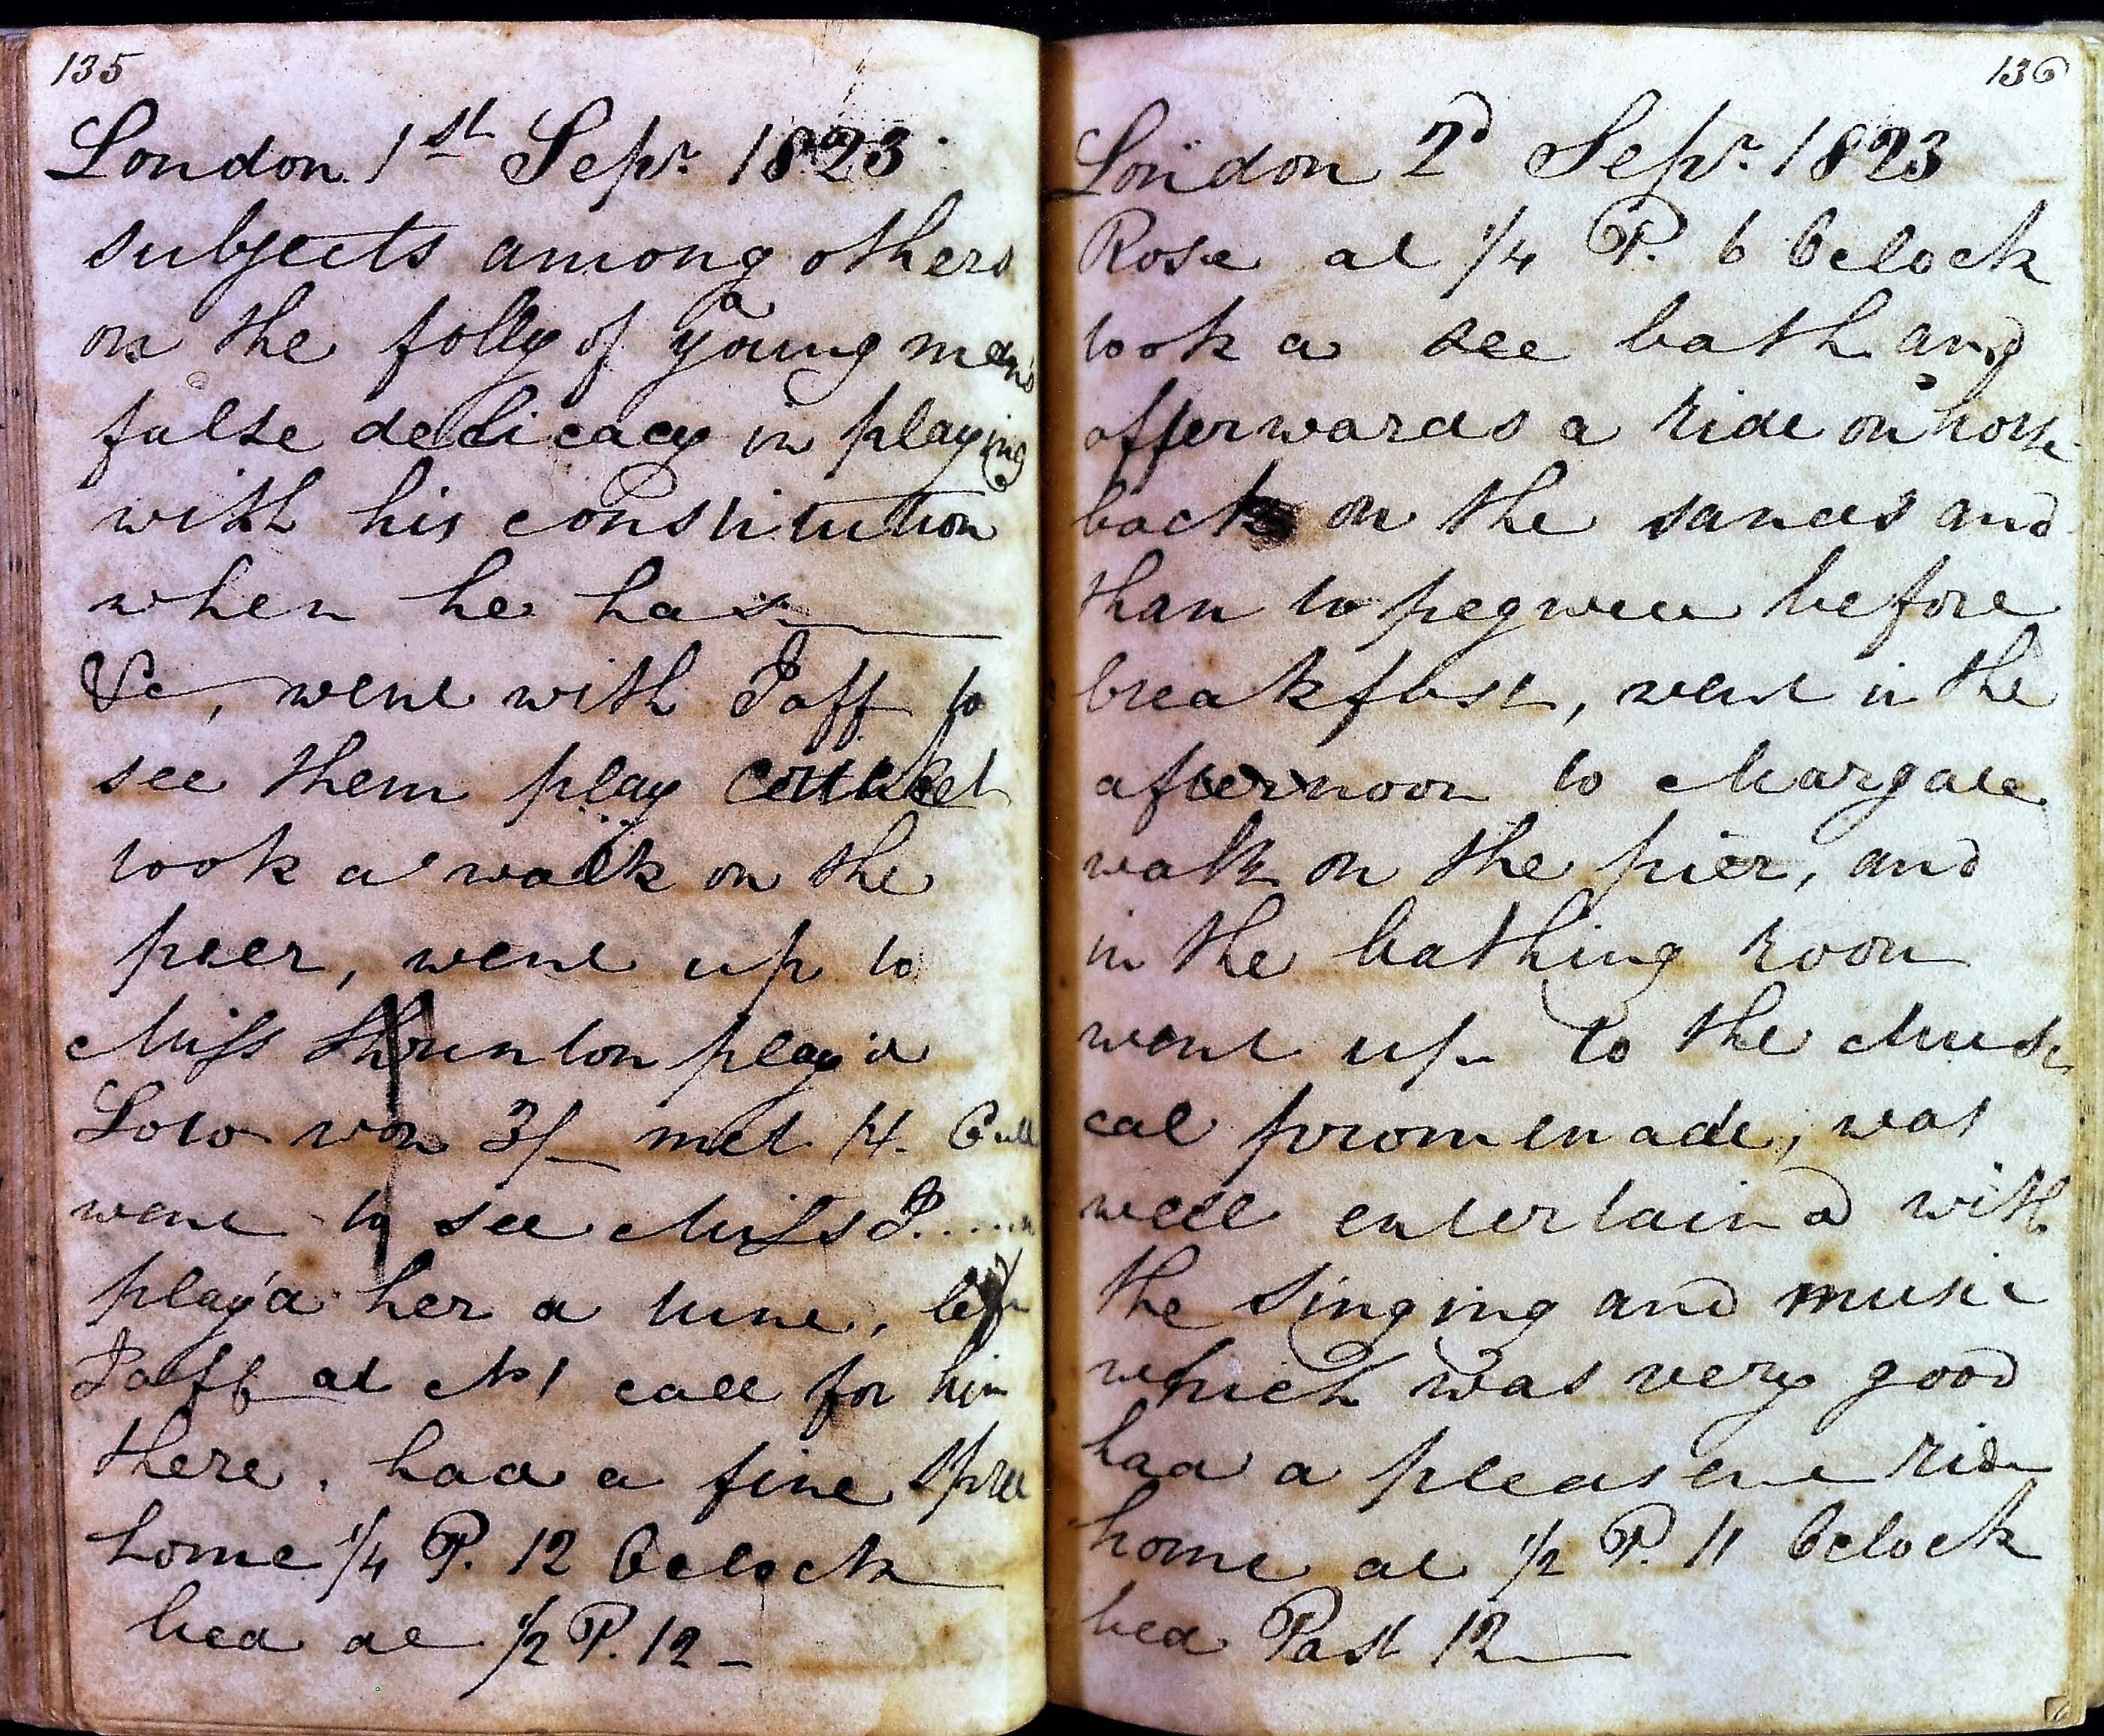 135
London 1st Sepr. 1823
subjects among others
on the folly of a young mans
false delicacy in playing
with his constitution
when he has
&c, went with Taff to
see them play
took a walk on the
peer, went up to
Miss Thrunton play'd
Loto won 3/- met H. Bull
went to see Miss P....n
play'd her a tune, left
Taff at No 1 call for him
there. had a fine spree
home 1/4 P. 12 Oclock
bed at 1/2 P. 12 -
136
London 2d Sepr. 1823
Rose at 1/4 P. 6 Oclock
took a see bath and
afterwards a ride on horse
back on the sands and
than to pegwee before
breakfast, went in the
afternoon to Margate
walk on the pier, and
in the bathing room
went up to the Musi
cal promenade, was
well entertaind with
the singing and music
which was very good
had a pleasent ride
home at 1/2 P. 11 Oclock
bed Past 12